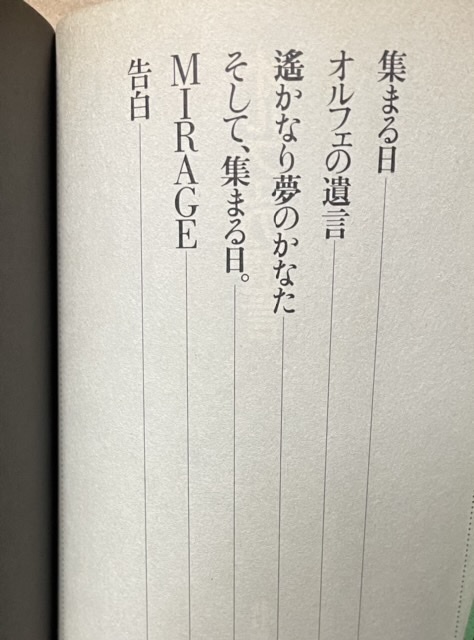 集まる日
オルフェの遺言
遙かなり夢のかなた
そして、集まる日。
MIRAGE
告白